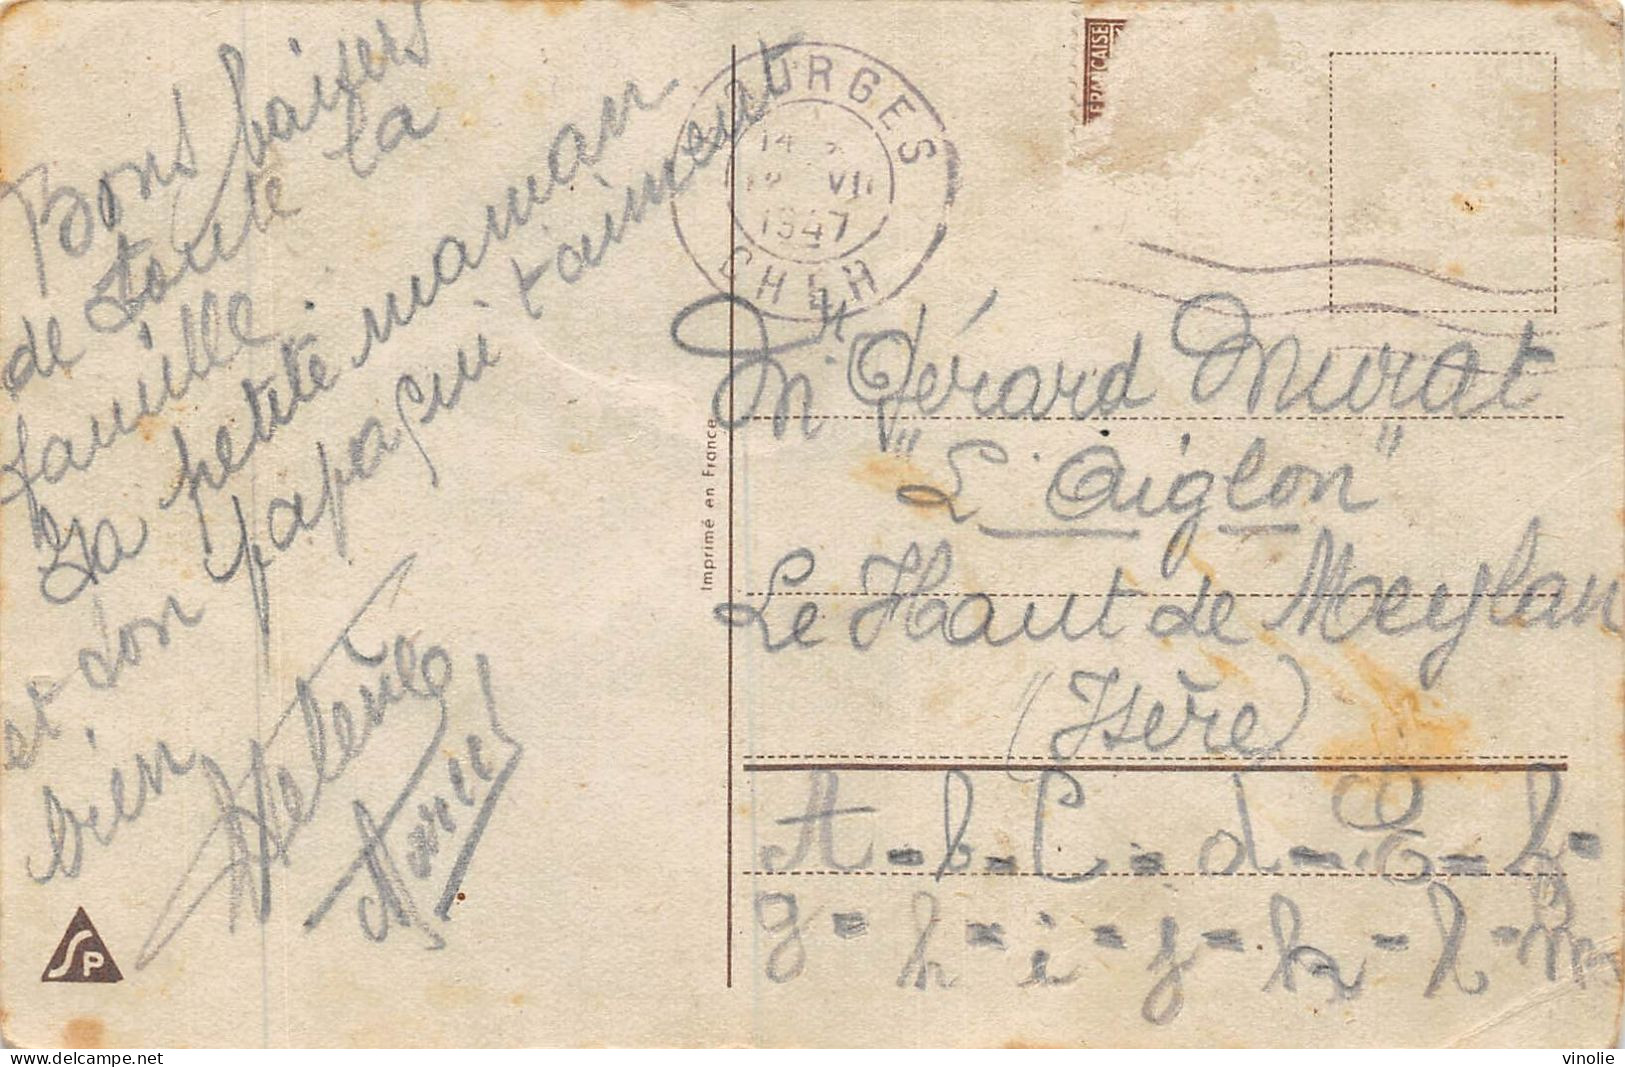 Bons baisers
de toute la
famille
Ta petite maman
et ton papa qui t'aiment
bien
Hélène
SP
Imprimé en France
BOURGES
14
VII
1947
CHER
FRANCAISE
Mr Gérard Murat
"L'Aiglon"
Le Haut de Meylan
(Isère)
A - b - C - d - E - f -
g - h - i - j - k - l - m
delcampe.net
vinolie